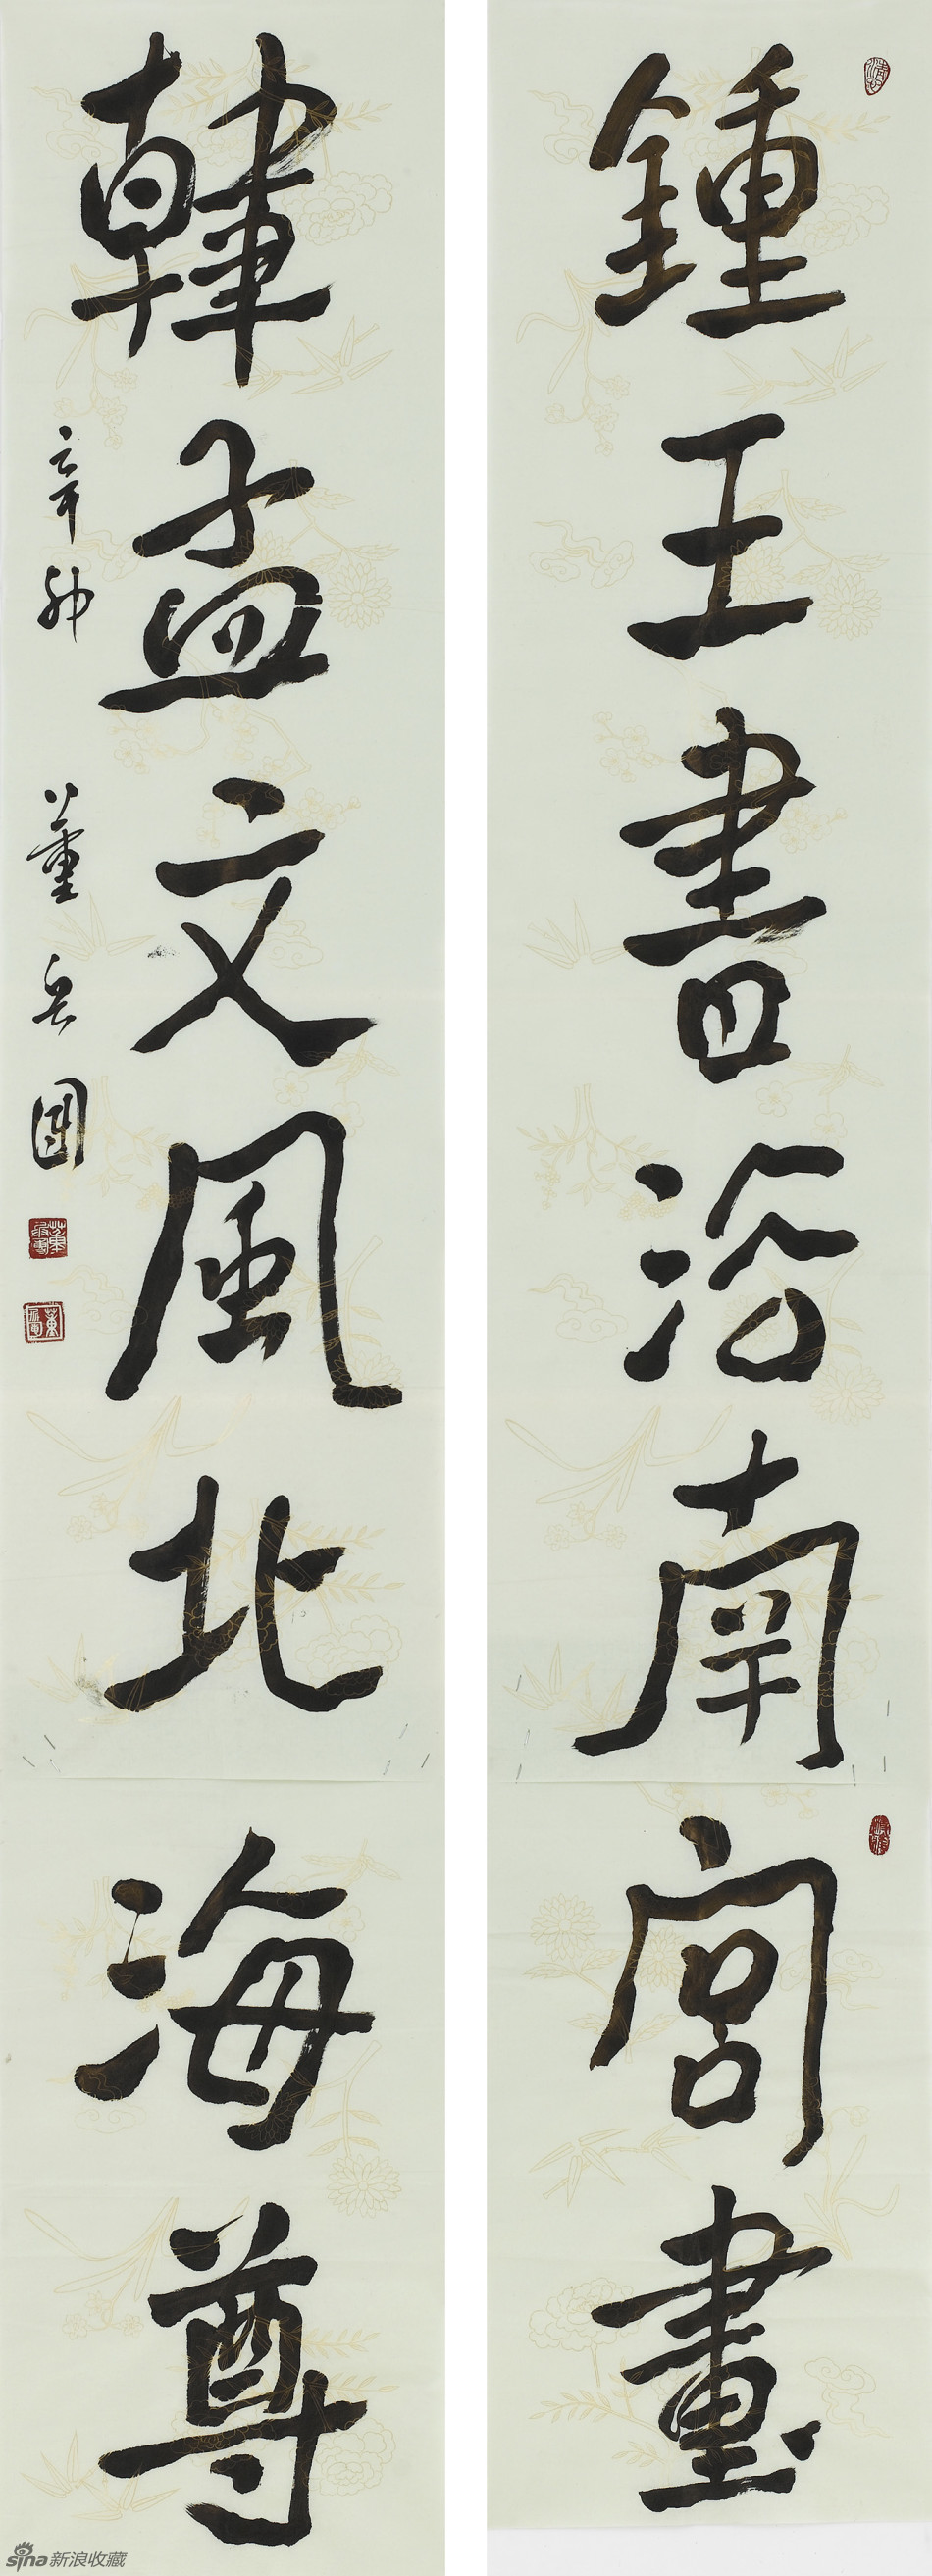 鍾王書南宮畫
韓孟文風北海尊
辛卯 董
sina新浪收藏